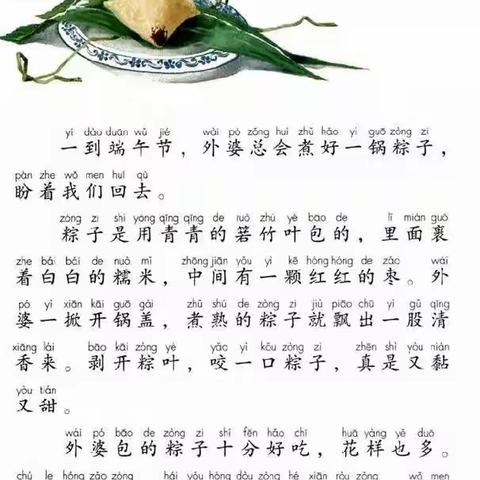 yí dào duān wǔ jié wài pó zǒng huì zhǔ hǎo yì guō zòng zi
一到端午节，外婆总会煮好一锅粽子，
pàn zhe wǒ men huí qù
盼着我们回去。
zòng zi shì yòng qīng qīng de ruò zhú yè bāo de lǐ miàn guǒ
粽子是用青青的箬竹叶包的，里面裹
zhe bái bái de nuò mǐ zhōng jiān yǒu yì kē hóng hóng de zǎo wài
着白白的糯米，中间有一颗红红的枣。外
pó yì xiān kāi guō gài zhǔ shú de zòng zi jiù piāo chū yì gǔ qīng
婆一掀开锅盖，煮熟的粽子就飘出一股清
xiāng lái bāo kāi zòng yè yǎo yì kǒu zòng zi zhēn shì yòu nián
香来。剥开粽叶，咬一口粽子，真是又黏
yòu tián
又甜。
wài pó bāo de zòng zi shí fēn hǎo chī huā yàng yě duō
外婆包的粽子十分好吃，花样也多。
chú le hóng zǎo zòng hái yǒu hóng dòu zòng hé xiān ròu zòng wǒ men